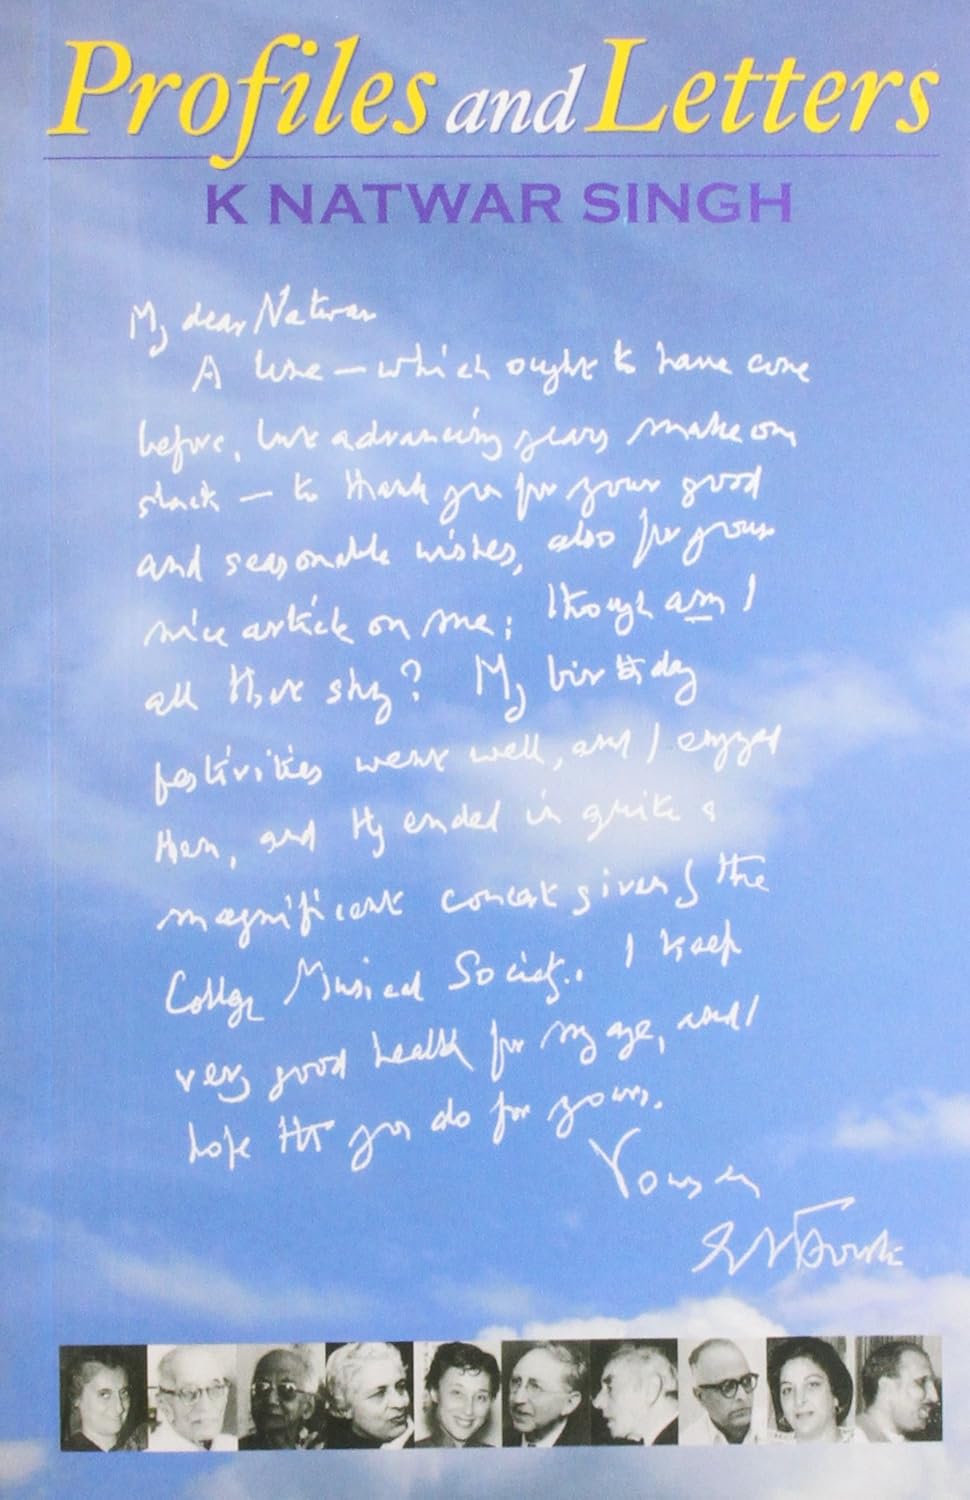 Profiles and Letters
K NATWAR SINGH
My dear Natwar
A line — which ought to have come
before, but advancing years make one
slack — to thank you for your good
and seasonable wishes, also for your
nice article on me; though am I
all that shy? My birthday
festivities went well, and I enjoyed
them, and they ended in quite a
magnificent concert given by the
College Musical Society. I keep
very good health for my age, and I
hope that you do for yours.
Yours ever
EMForster